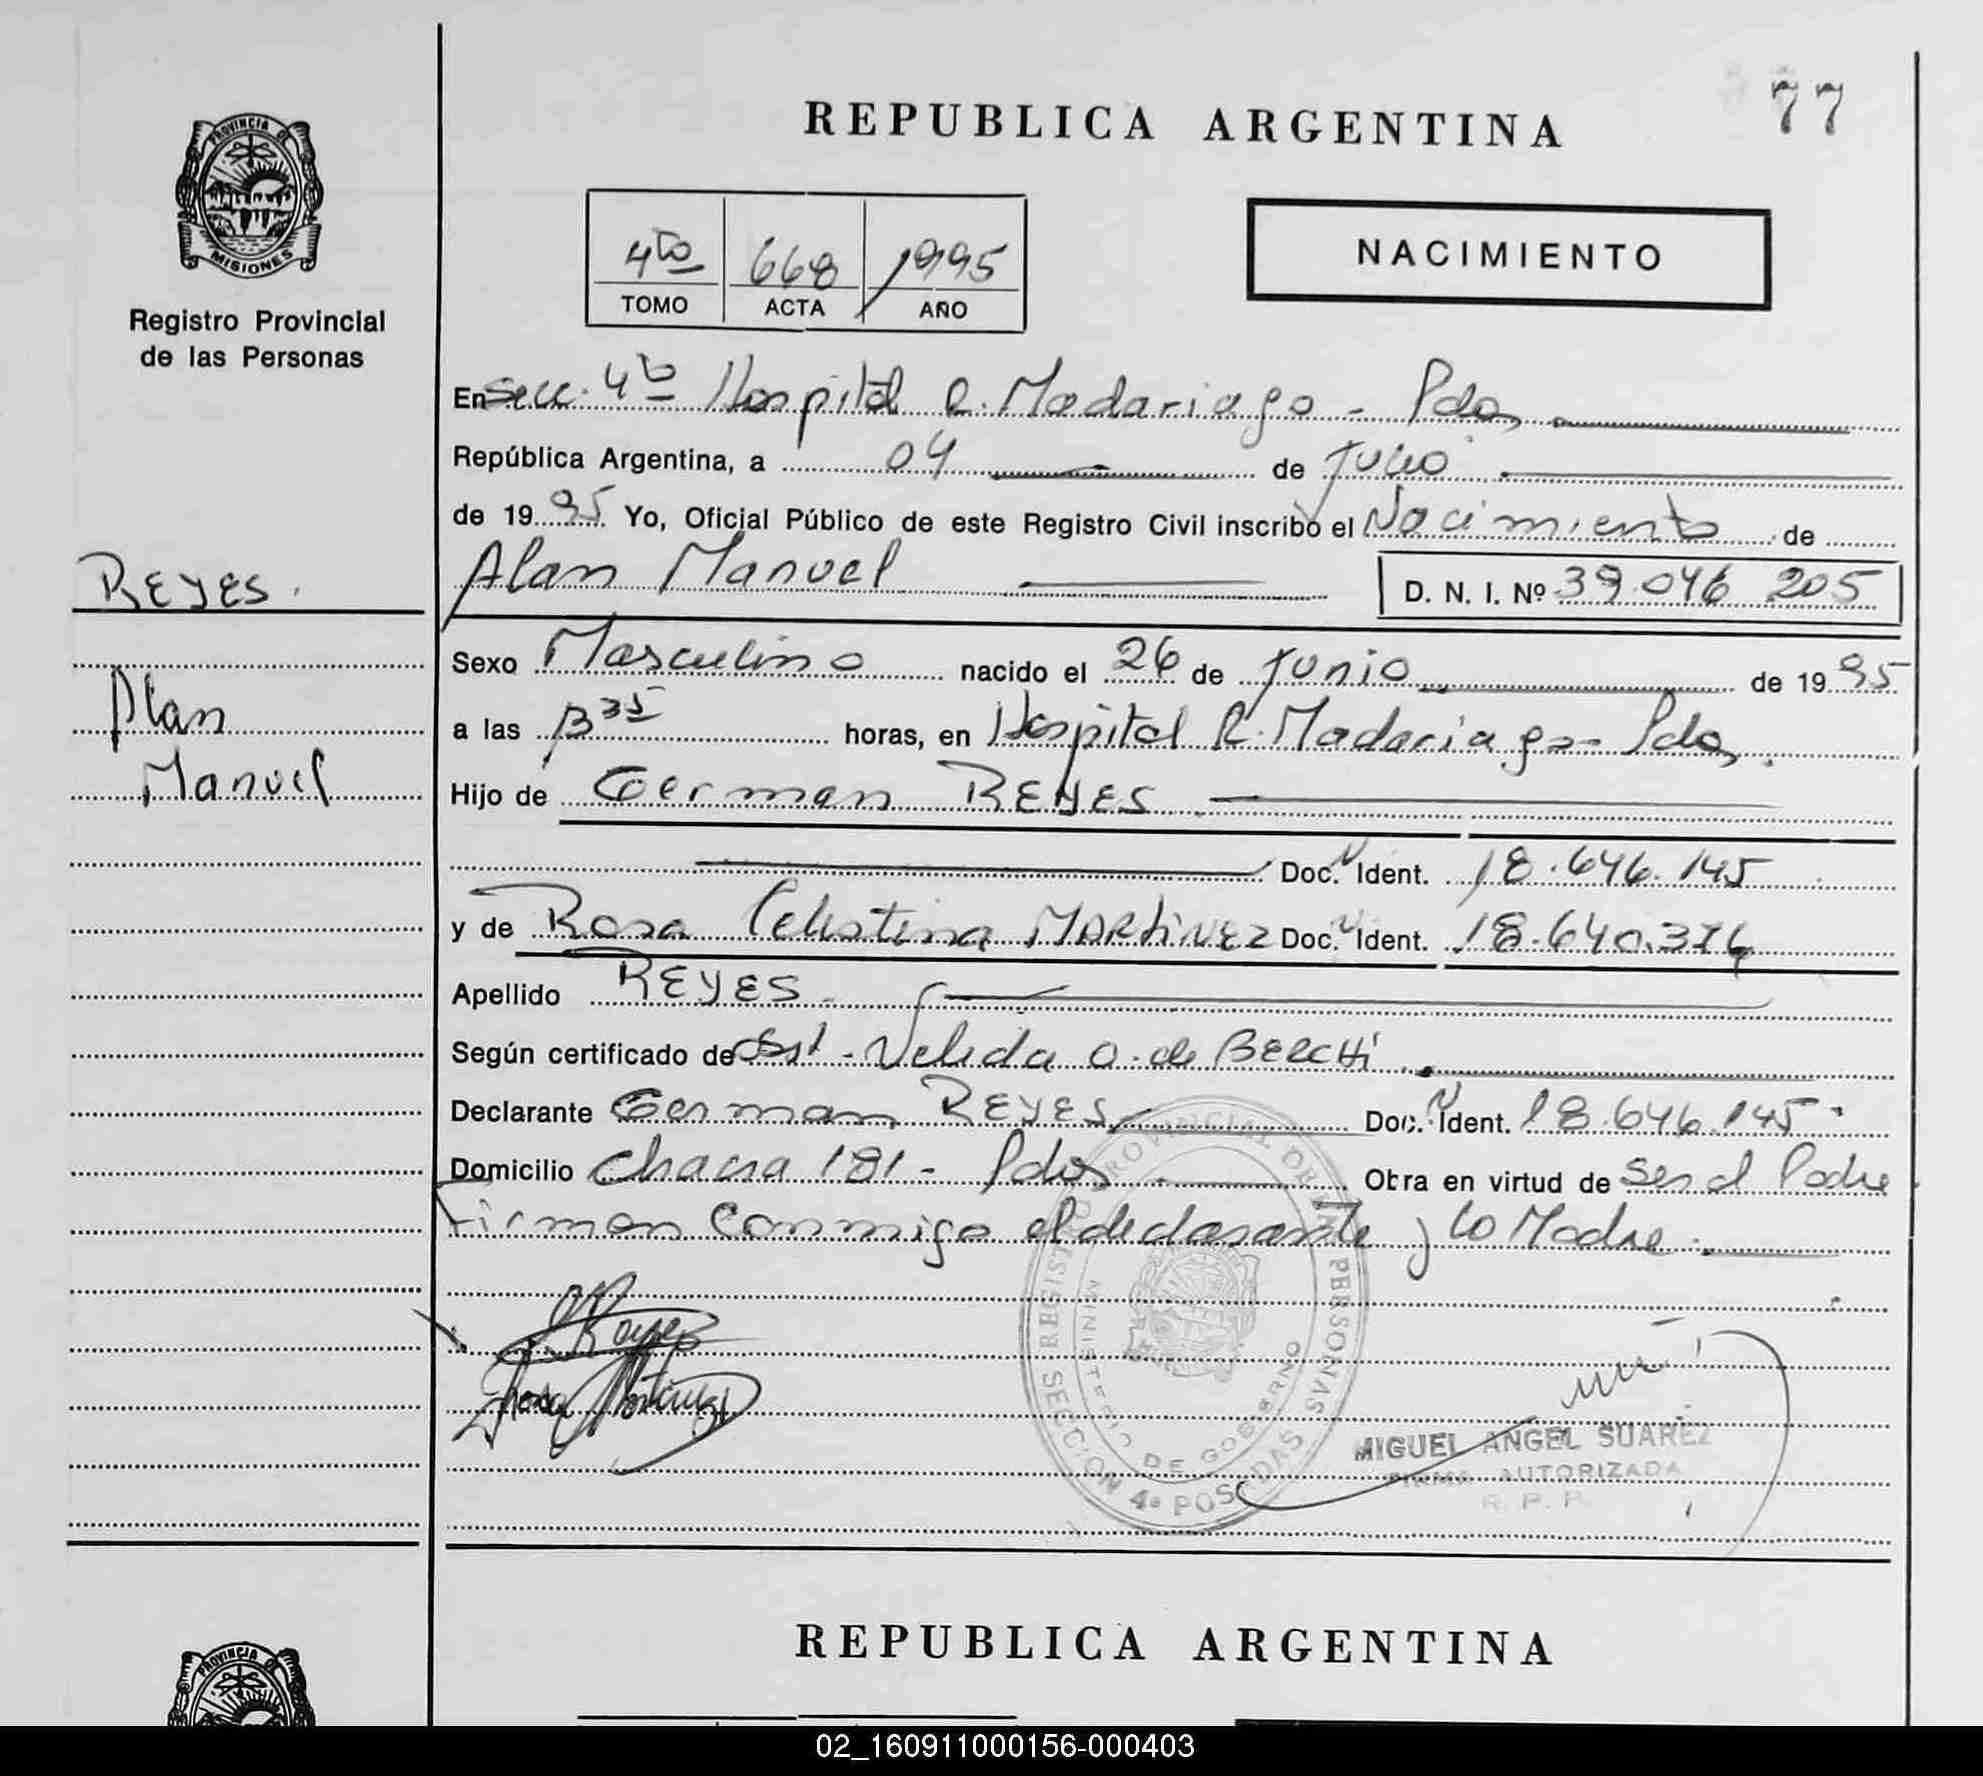 77
REPUBLICA ARGENTINA
PROVINCIA DE
MISIONES
Registro Provincial
de las Personas
NACIMIENTO
4to 668 1995
TOMO ACTA AÑO
En Secc. 4to Hospital R. Madariaga - Pdas
República Argentina, a 04 de Julio
de 1995 Yo, Oficial Público de este Registro Civil inscribo el Nacimiento de
Alan Manuel D. N. I. Nº 39.046 205
REYES.
Alan
Manuel
Sexo Masculino nacido el 26 de Junio de 1995
a las 13 35 horas, en Hospital R. Madariaga - Pdas.
Hijo de German REYES
Doc. Ident. 18.646.145
y de Rosa Celestina MARTINEZ Doc. Ident. 18.640.376
Apellido REYES.
Según certificado de Obst. Nelida O. de BERCHI
Declarante German REYES Doc. Ident. 18.646.145
Domicilio Chacra 181 - Pdas Obra en virtud de Ser el Padre
Firman Conmigo el declarante y la Madre.
REGISTRO PROVINCIAL DE LAS PERSONAS
MINISTERIO DE GOBIERNO
SECCION 4a POSADAS
Rosa Martinez
MIGUEL ANGEL SUAREZ
FIRMA AUTORIZADA
R. P. P.
REPUBLICA ARGENTINA
PROVINCIA DE
02_160911000156-000403